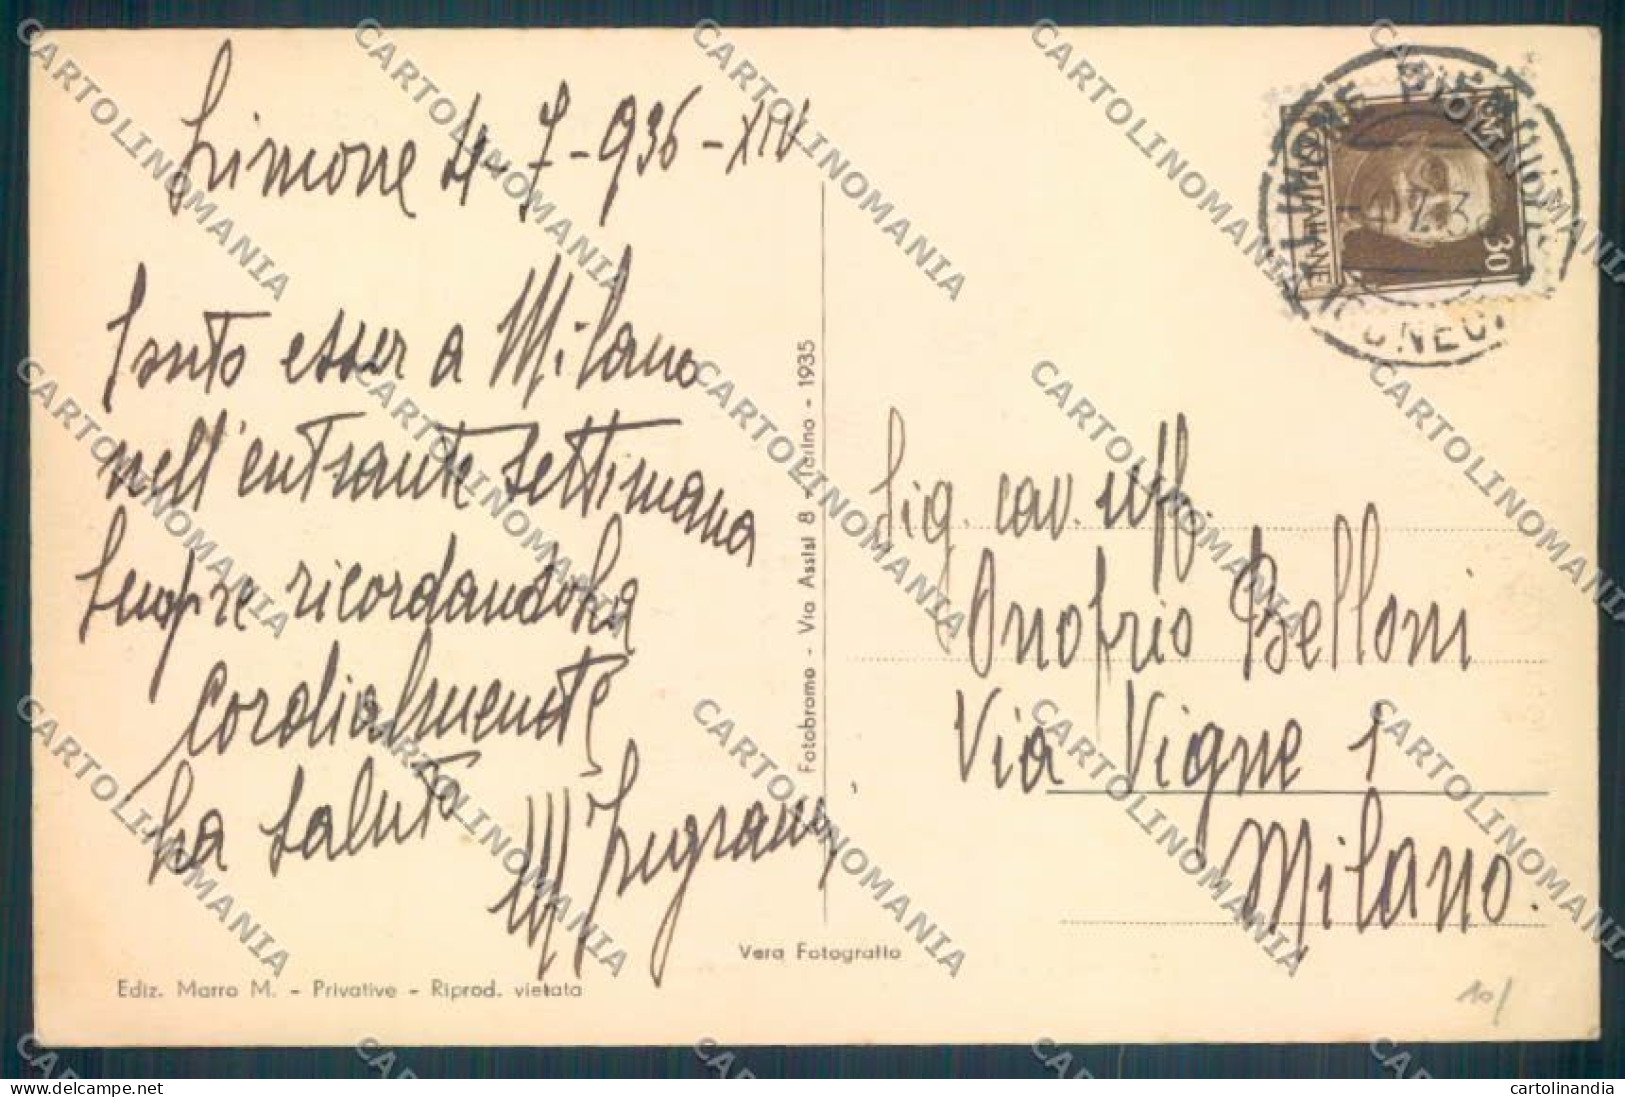 Limone 4-7-936-XIV
esser a Milano
nell'entrante settimana
Sempre ricordandola
cordialmente
la saluto
Fotobromo - Via Assisi 8 - Torino - 1935
Vera Fotografia
Ediz. Marro M. - Privative - Riprod. vietata
LIMONE PIEMONTE
CUNEO
ITALIANE
30
Sig. cav. uff.
Onofrio Belloni
Via Vigne 1
Milano.
10/
CARTOLINOMANIA
www.delcampe.net
cartolinandia